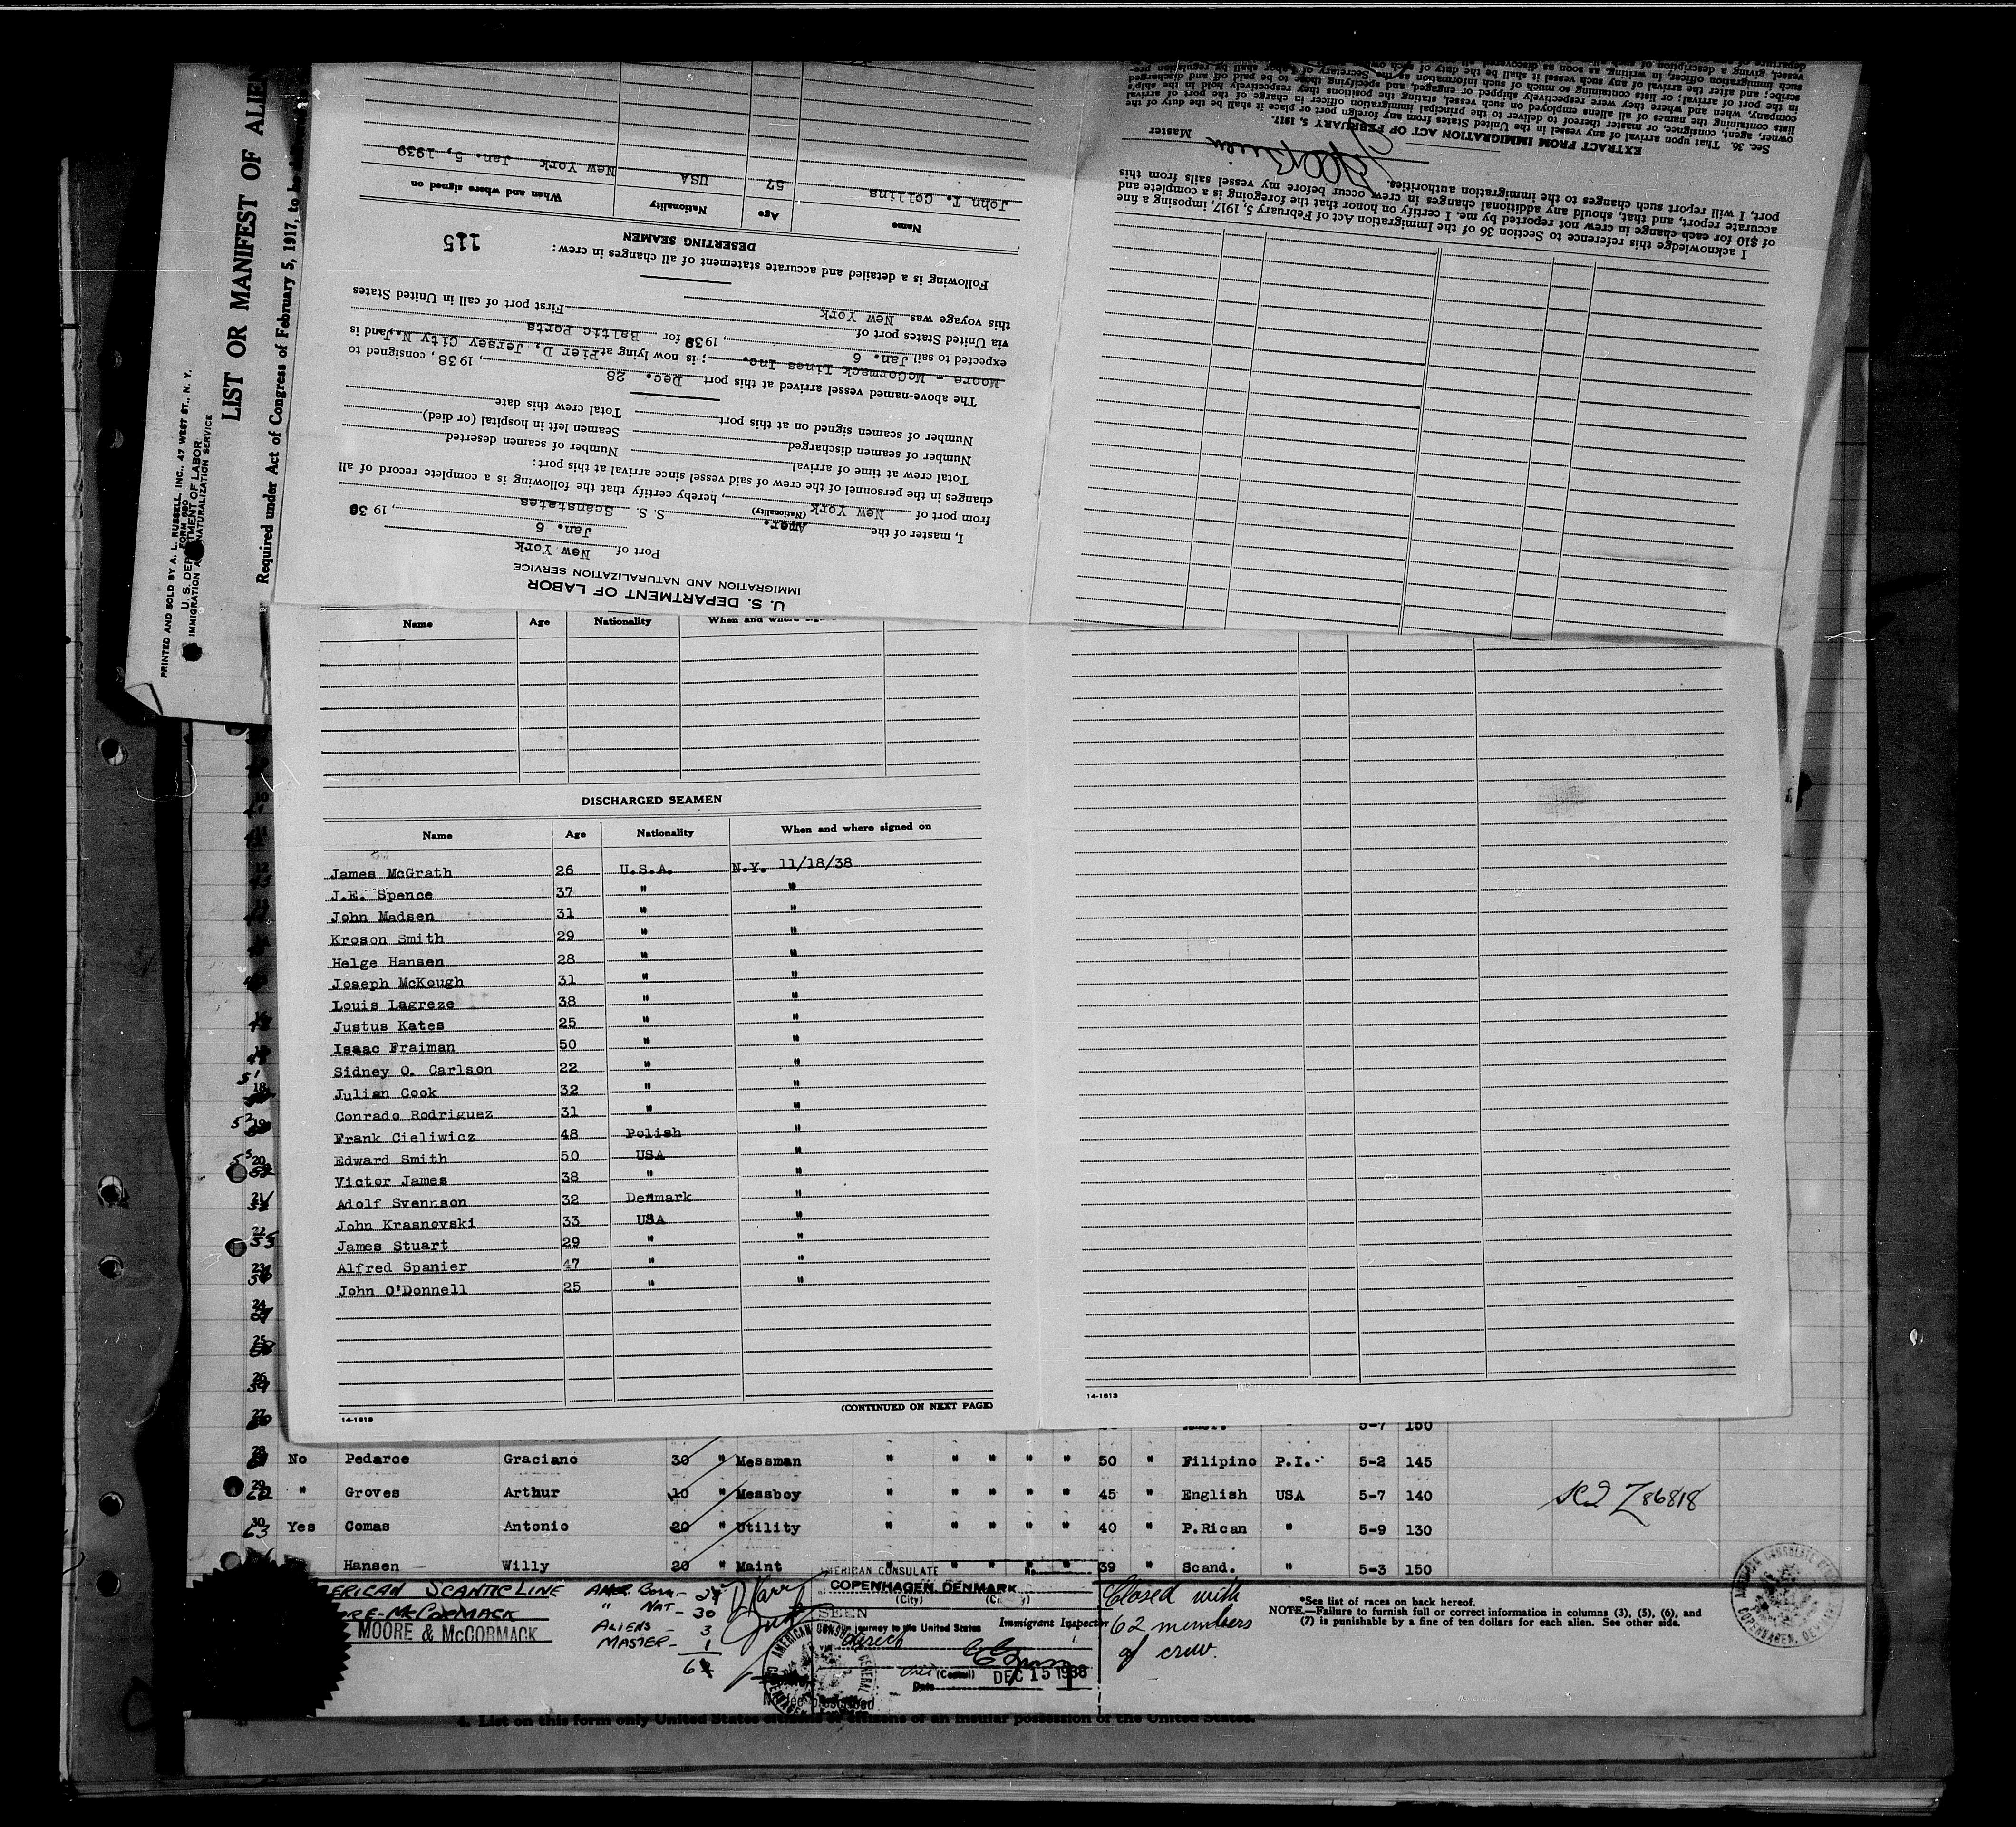 PRINTED AND SOLD BY A. L. RUSSELL, INC., 47 WEST ST., N. Y.
FORM 680
U. S. DEPARTMENT OF LABOR
IMMIGRATION AND NATURALIZATION SERVICE
LIST OR MANIFEST OF ALIEN
Required under Act of Congress of February 5, 1917, to be
U. S. DEPARTMENT OF LABOR
IMMIGRATION AND NATURALIZATION SERVICE
Port of New York
Jan. 6, 1939
I, master of the Amer. S. S. Scanstates
(Nationality)
from port of New York, hereby certify that the following is a complete record of all
changes in the personnel of the crew of said vessel since arrival at this port:
Total crew at time of arrival Number of seamen deserted
Number of seamen discharged Seamen left in hospital (or died)
Number of seamen signed on at this port Total crew this date
The above-named vessel arrived at this port Dec. 28, 1938, consigned to
Moore - McCormack Lines Inc.; is now lying at Pier D, Jersey City N.J. and is
expected to sail Jan. 6, 1939 for Baltic Ports
via United States port of First port of call in United States
this voyage was New York
Following is a detailed and accurate statement of all changes in crew:
DESERTING SEAMEN 115
Name Age Nationality When and where signed on
John T. Collins 57 USA New York Jan. 5, 1939
I acknowledge this reference to Section 36 of the Immigration Act of February 5, 1917, imposing a fine
of $10 for each change in crew not reported by me. I certify on honor that the foregoing is a complete and
accurate report, and that, should any additional changes in crew occur before my vessel sails from this
port, I will report such changes to the immigration authorities.
Master
EXTRACT FROM IMMIGRATION ACT OF FEBRUARY 5, 1917.
Sec. 36. That upon arrival of any vessel in the United States from any foreign port or place it shall be the duty of the
owner, agent, consignee, or master thereof to deliver to the principal immigration officer in charge of the port of arrival
lists containing the names of all aliens employed on such vessel, stating the positions they respectively hold in the ship's
company, when and where they were respectively shipped or engaged, and specifying those to be paid off and discharged
in the port of arrival; or lists containing so much of such information as the Secretary of Labor shall by regulation pre-
scribe; and after the arrival of any such vessel it shall be the duty of such
such immigration officer, in writing, as soon as discovered, all
vessel, giving a description of such
Name Age Nationality When and where
DISCHARGED SEAMEN
Name Age Nationality When and where signed on
James McGrath 26 U.S.A. N.Y. 11/18/38
J.E. Spence 37 " "
John Madsen 31 " "
Kroson Smith 29 " "
Helge Hansen 28 " "
Joseph McKough 31 " "
Louis Lagreze 38 " "
Justus Kates 25 " "
Isaac Fraiman 50 " "
Sidney O. Carlson 22 " "
Julian Cook 32 " "
Conrado Rodriguez 31 " "
Frank Cieliwicz 48 Polish "
Edward Smith 50 USA "
Victor James 38 " "
Adolf Svennson 32 Denmark "
John Krasnovski 33 USA "
James Stuart 29 " "
Alfred Spanier 47 " "
John O'Donnell 25 " "
(CONTINUED ON NEXT PAGE)
14-1613
14-1613
5-7 150
No Pedarce Graciano 30 " Messman " " " " " 50 " Filipino P.I. 5-2 145
" Groves Arthur 10 " Messboy " " " " " 45 " English USA 5-7 140
63 Yes Comas Antonio 20 " Utility " " " " " 40 " P.Rican " 5-9 130
Hansen Willy 20 " Maint " " " " 39 " Scand. " 5-3 150
ERICAN SCANTIC LINE
RE-McCORMACK
MOORE & McCORMACK
AMER BORN - 
" NAT - 30
ALIENS - 3
MASTER - 1
AMERICAN CONSULATE
COPENHAGEN, DENMARK
(City) (Country)
SEEN
journey to the United States
direct
(Consul)
Date DEC 15 1938
Immigrant Inspector
Closed with
62 members
of crew.
*See list of races on back hereof.
NOTE.—Failure to furnish full or correct information in columns (3), (5), (6), and
(7) is punishable by a fine of ten dollars for each alien. See other side.
4. List on this form only United States citizens or citizens of an insular possession of the United States.